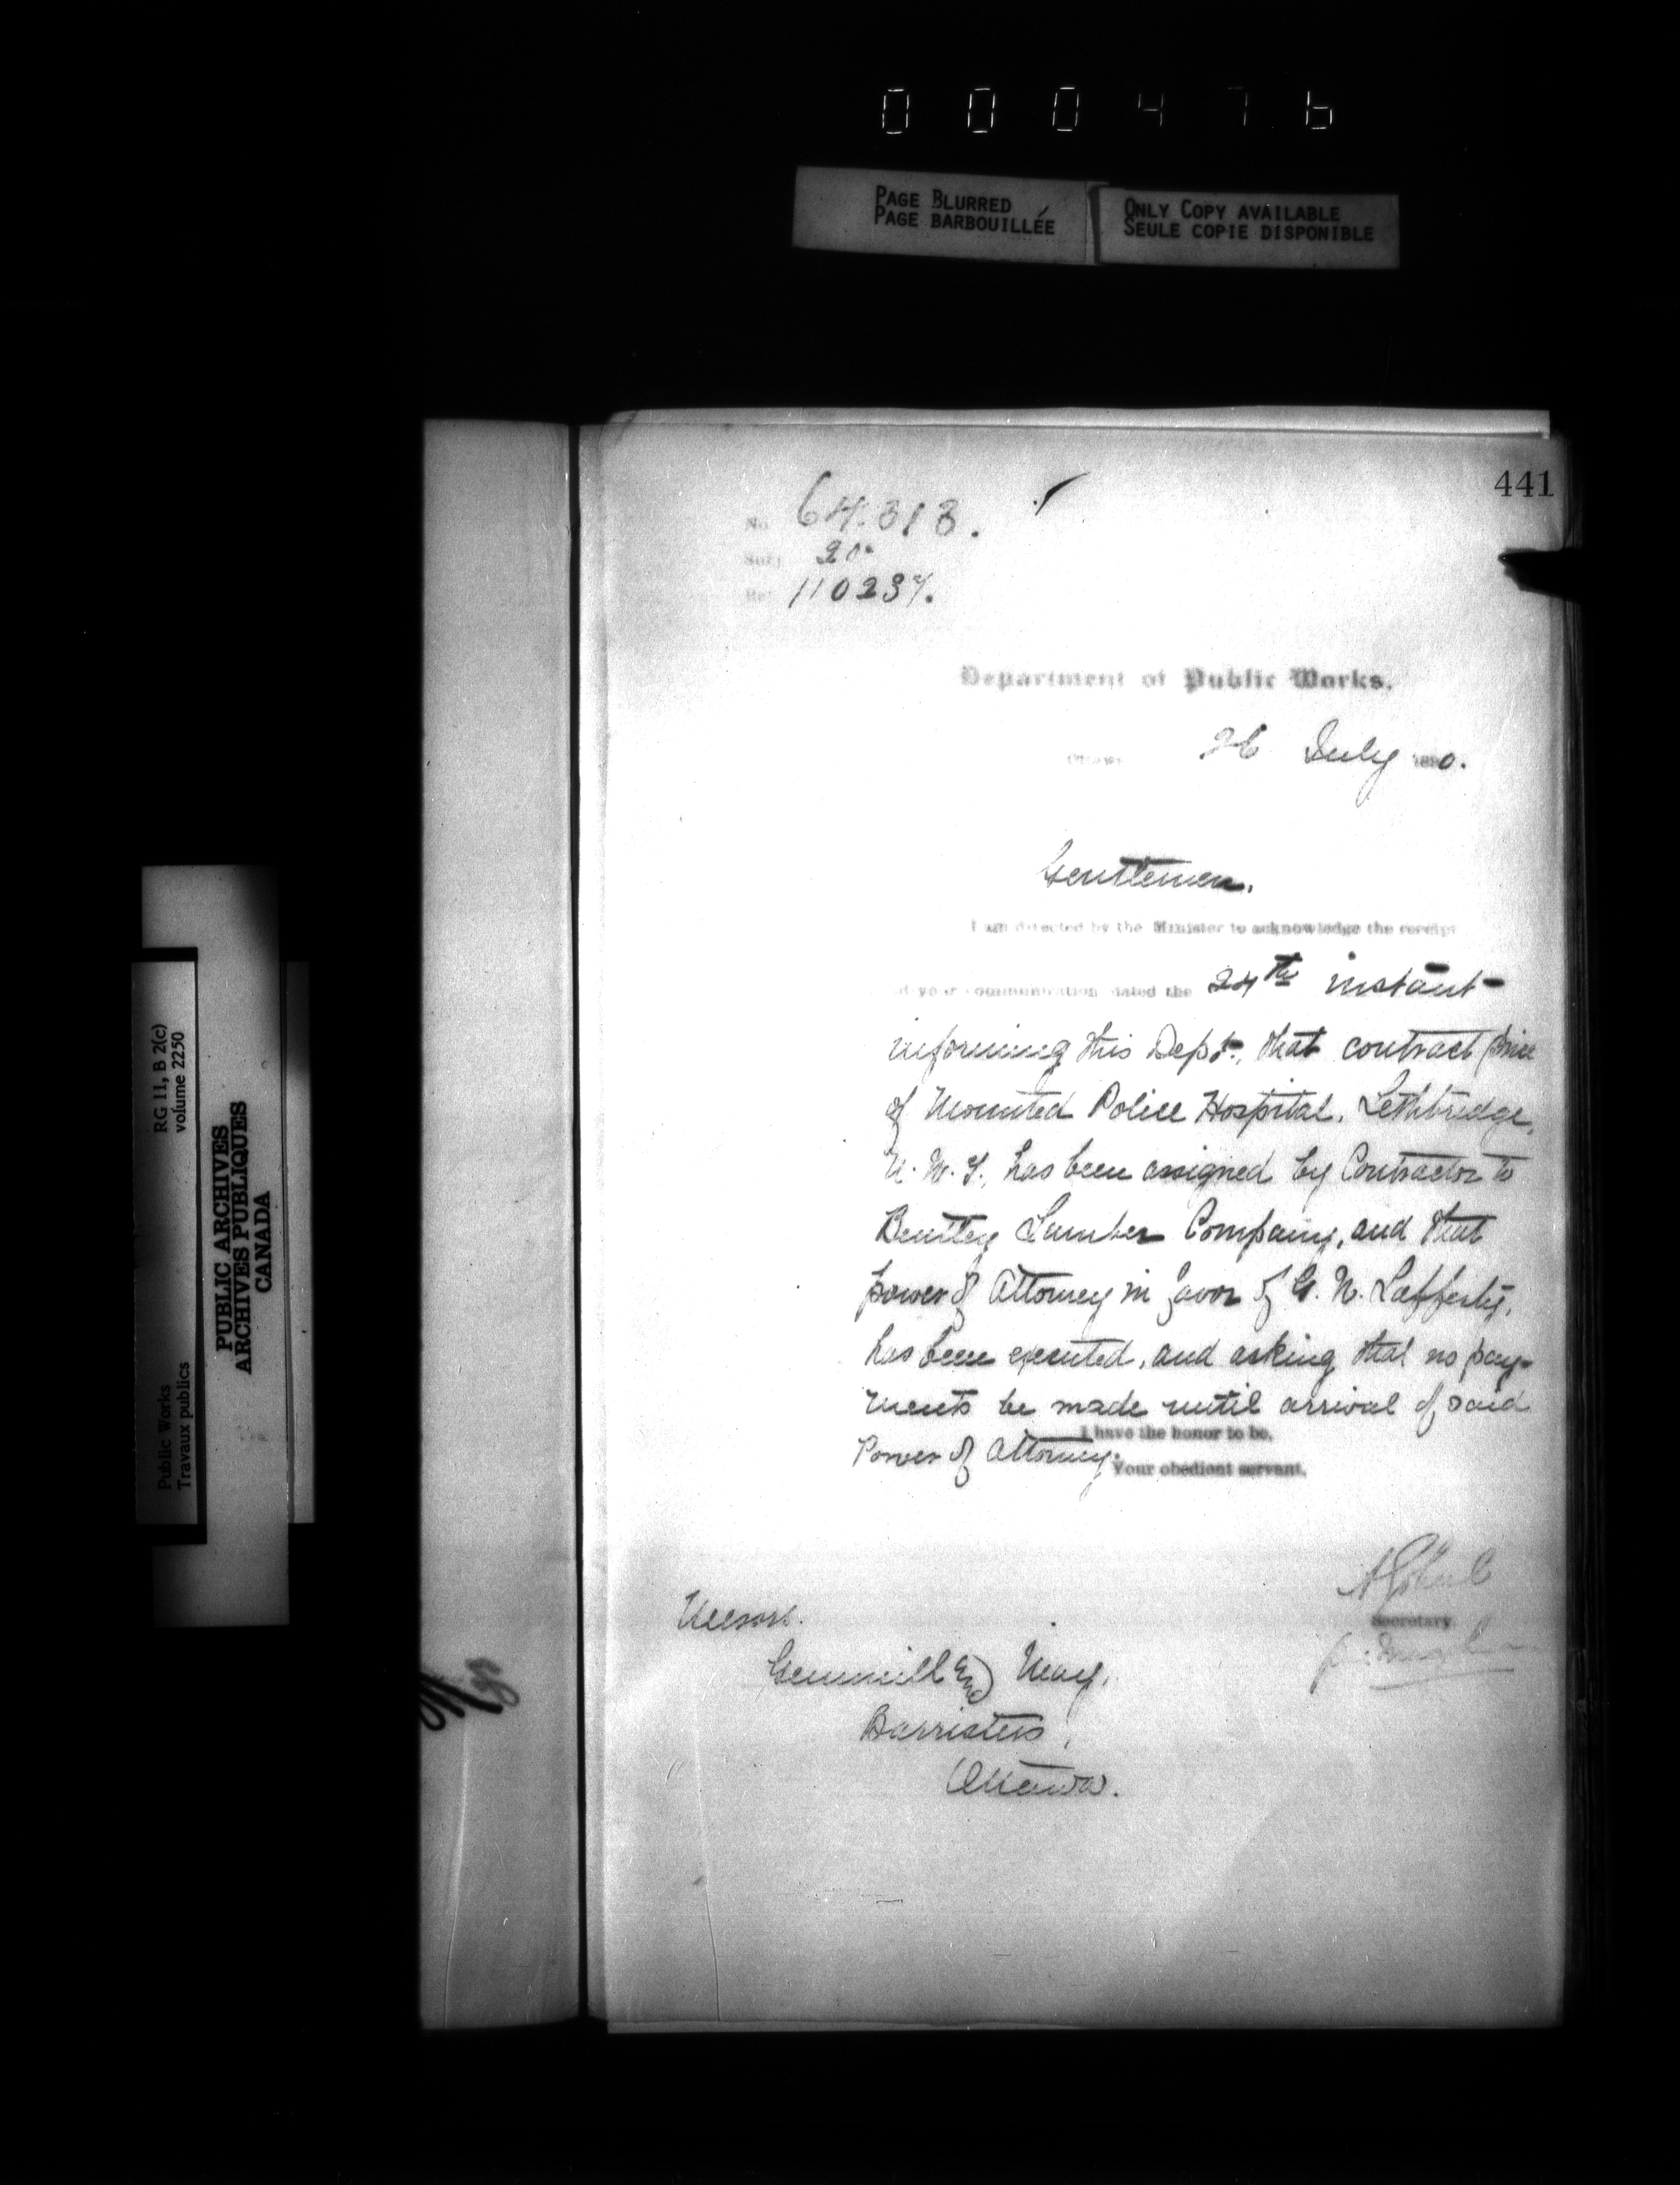 000476
PAGE BLURRED
PAGE BARBOUILLÉE
ONLY COPY AVAILABLE
SEULE COPIE DISPONIBLE
441
No 64.313.
Subj 20.
Ref 110237.
Department of Public Works.
Ottawa 26 July 1890.
Gentlemen.
I am directed by the Minister to acknowledge the receipt
of your communication dated the 24th instant
informing this Dept., that contract price
of Mounted Police Hospital, Lethbridge,
N. W. T., has been assigned by Contractor to
Bentley Lumber Company, and that
power of Attorney in favor of G. N. Lafferty,
has been executed, and asking that no pay-
ments be made until arrival of said
Power of Attorney.
I have the honor to be,
Your obedient servant,
Secretary
Messrs.
Gemmill and May,
Barristers,
Ottawa.
RG 11, B 2(c)
volume 2250
PUBLIC ARCHIVES
ARCHIVES PUBLIQUES
CANADA
Public Works
Travaux publics